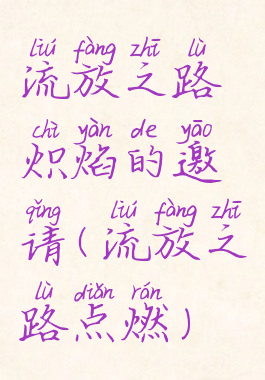 liú fàng zhī lù
流放之路
chì yàn de yāo
炽焰的邀
qǐng liú fàng zhī
请(流放之
lù diǎn rán
路点燃)